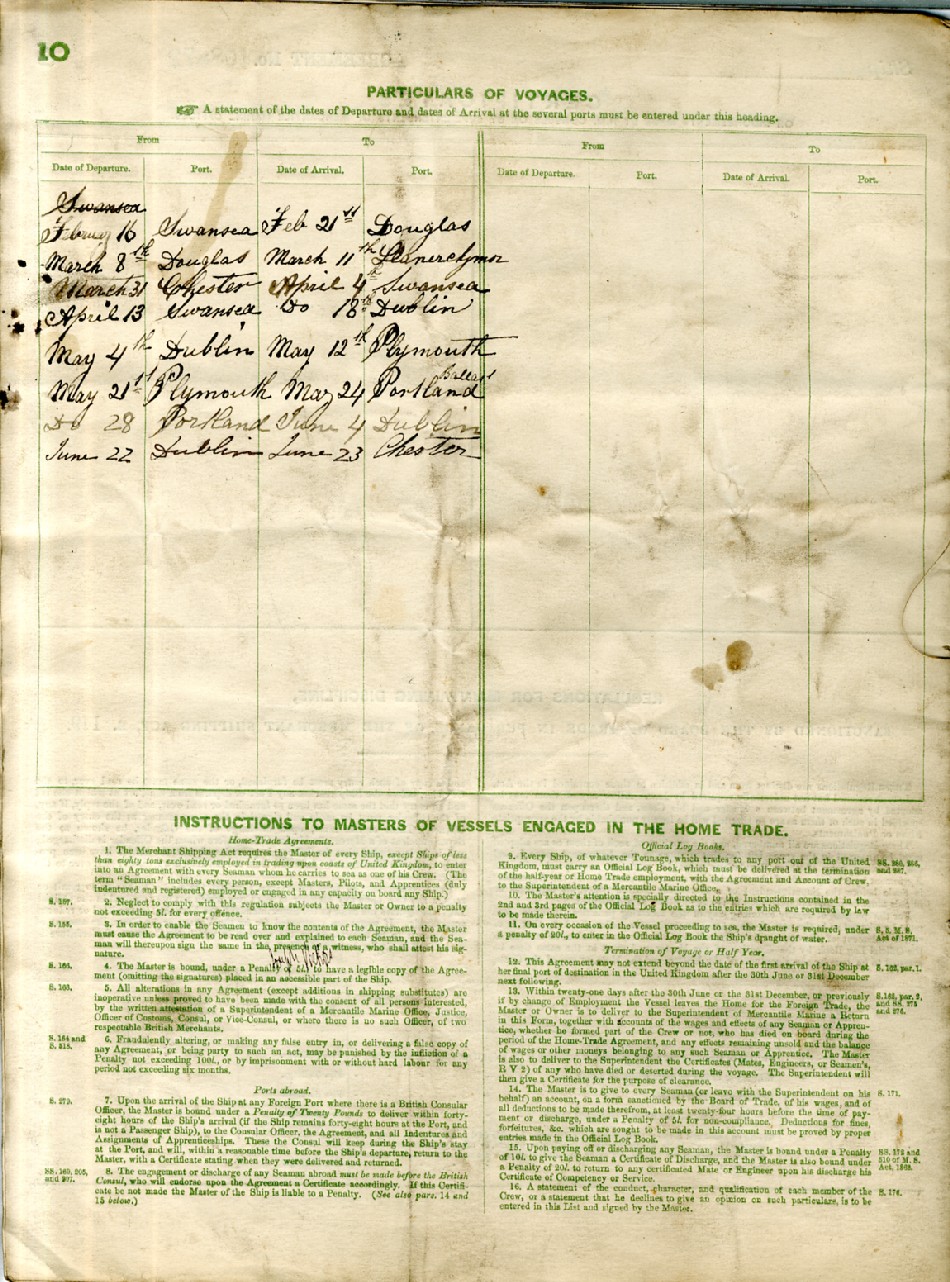 10
PARTICULARS OF VOYAGES.
☞ A statement of the dates of Departure and dates of Arrival at the several ports must be entered under this heading.
From To From To
Date of Departure. Port. Date of Arrival. Port. Date of Departure. Port. Date of Arrival. Port.
Swansea
February 16 Swansea Feb 21st Douglas
March 8th Douglas March 11th
March 31 Chester April 4th Swansea
April 13 Swansea Do 18th Dublin
May 4th Dublin May 12th Plymouth
May 21st Plymouth May 24 Portland Ballast
Do 28 Portland June 4 Dublin
June 22 Dublin June 23 Chester
INSTRUCTIONS TO MASTERS OF VESSELS ENGAGED IN THE HOME TRADE.
Home-Trade Agreements.
1. The Merchant Shipping Act requires the Master of every Ship, except Ships of less
than eighty tons exclusively employed in trading upon coasts of United Kingdom, to enter
into an Agreement with every Seaman whom he carries to sea as one of his Crew. (The
term "Seaman" includes every person, except Masters, Pilots, and Apprentices (duly
indentured and registered) employed or engaged in any capacity on board any Ship.)
S. 157.
2. Neglect to comply with this regulation subjects the Master or Owner to a penalty
not exceeding 5l. for every offence.
S. 155.
3. In order to enable the Seamen to know the contents of the Agreement, the Master
must cause the Agreement to be read over and explained to each Seaman, and the Sea-
man will thereupon sign the same in the presence of a witness, who shall attest his sig-
nature.
S. 166.
4. The Master is bound, under a Penalty of 5l., to have a legible copy of the Agree-
ment (omitting the signatures) placed in an accessible part of the Ship.
5. All alterations in any Agreement (except additions in shipping substitutes) are
inoperative unless proved to have been made with the consent of all persons interested,
by the written attestation of a Superintendent of a Mercantile Marine Office, Justice,
Officer of Customs, Consul, or Vice-Consul, or where there is no such Officer, of two
respectable British Merchants.
S. 164 and
6. Fraudulently altering, or making any false entry in, or delivering a false copy of
any Agreement, or being party to such an act, may be punished by the infliction of a
Penalty not exceeding 100l., or by imprisonment with or without hard labour for any
period not exceeding six months.
Ports abroad.
S. 279.
7. Upon the arrival of the Ship at any Foreign Port where there is a British Consular
Officer, the Master is bound under a Penalty of Twenty Pounds to deliver within forty-
eight hours of the Ship's arrival (if the Ship remains forty-eight hours at the Port, and
is not a Passenger Ship), to the Consular Officer, the Agreement, and all Indentures and
Assignments of Apprenticeships. These the Consul will keep during the Ship's stay
at the Port, and will, within a reasonable time before the Ship's departure, return to the
Master, with a Certificate stating when they were delivered and returned.
SS. 160, 205,
and 207.
8. The engagement or discharge of any Seaman abroad must be made before the British
Consul, who will endorse upon the Agreement a Certificate accordingly. If this Certifi-
cate be not made the Master of the Ship is liable to a Penalty. (See also pars. 14 and
15 below.)
Official Log Books.
9. Every Ship, of whatever Tonnage, which trades to any port out of the United
Kingdom, must carry an Official Log Book, which must be delivered at the termination
of the half-year or Home Trade employment, with the Agreement and Account of Crew,
to the Superintendent of a Mercantile Marine Office.
10. The Master's attention is specially directed to the Instructions contained in the
2nd and 3rd pages of the Official Log Book as to the entries which are required by law
to be made therein.
11. On every occasion of the Vessel proceeding to sea, the Master is required, under
a penalty of 20l., to enter in the Official Log Book the Ship's draught of water.
S. 5, M. S.
Act of 1871.
Termination of Voyage or Half Year.
12. This Agreement may not extend beyond the date of the first arrival of the Ship at
her final port of destination in the United Kingdom after the 30th June or 31st December
next following.
S. 162, par. 1.
13. Within twenty-one days after the 30th June or the 31st December, or previously
if by change of Employment the Vessel leaves the Home for the Foreign Trade, the
Master or Owner is to deliver to the Superintendent of Mercantile Marine a Return
in this Form, together with accounts of the wages and effects of any Seaman or Appren-
tice, whether he formed part of the Crew or not, who has died on board during the
period of the Home-Trade Agreement, and any effects remaining unsold and the balance
of wages or other moneys belonging to any such Seaman or Apprentice. The Master
is also to deliver to the Superintendent the Certificates (Mates, Engineers, or Seamen's,
R V 2) of any who have died or deserted during the voyage. The Superintendent will
then give a Certificate for the purpose of clearance.
14. The Master is to give to every Seaman (or leave with the Superintendent on his
behalf) an account, on a form sanctioned by the Board of Trade, of his wages, and of
all deductions to be made therefrom, at least twenty-four hours before the time of pay-
ment or discharge, under a Penalty of 5l. for non-compliance. Deductions for fines,
forfeitures, &c. which are sought to be made in this account must be proved by proper
entries made in the Official Log Book.
S. 171.
15. Upon paying off or discharging any Seaman, the Master is bound under a Penalty
of 10l. to give the Seaman a Certificate of Discharge, and the Master is also bound under
a Penalty of 20l. to return to any certificated Mate or Engineer upon his discharge his
Certificate of Competency or Service.
16. A statement of the conduct, character, and qualification of each member of the
Crew, or a statement that he declines to give an opinion on such particulars, is to be
entered in this List and signed by the Master.